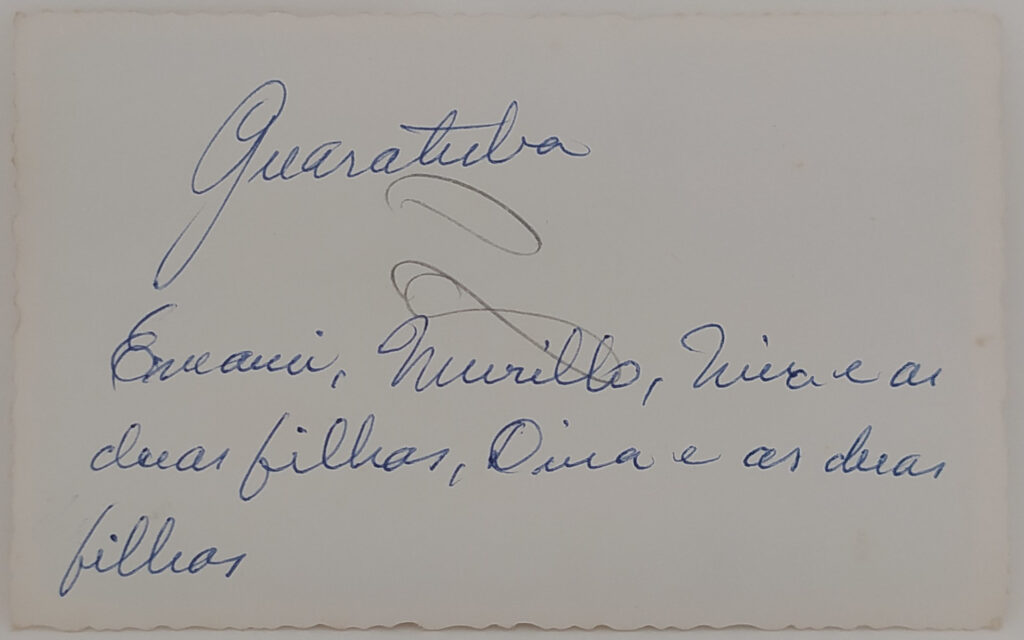 Guaratuba
Ernani, Murillo, Niva e as
duas filhas, Dina e as duas
filhas